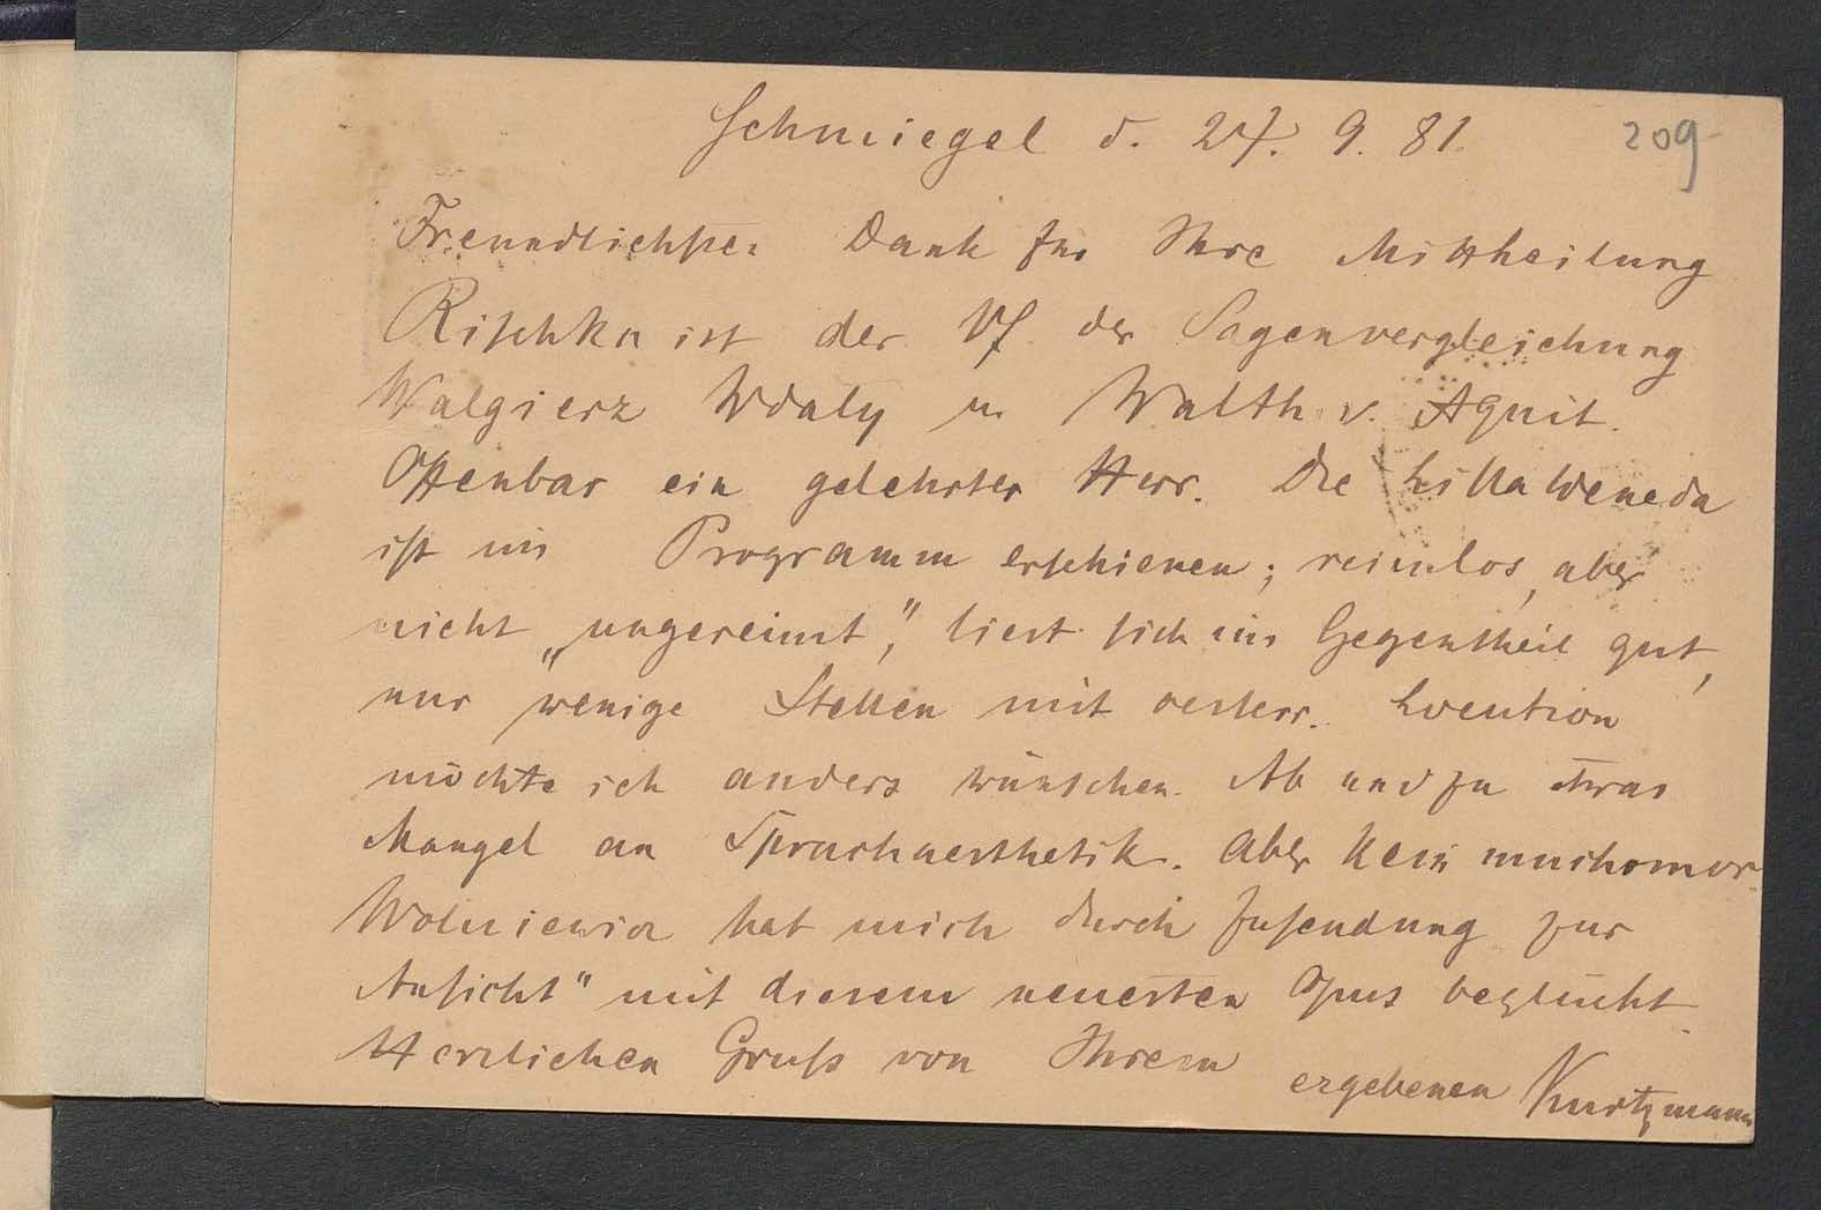 Schmiegel d. 27. 9. 81.
209
Freundlichsten Dank für Ihre Mittheilung
Rischka ist der Vf der Sagenvergleichung
Walgierz Wdaly u. Walth. v. Aquit.
Offenbar ein gelehrter Herr. Die Lilla Weneda
ist im Programm erschienen; reimlos, aber
nicht „ungereimt“, liest sich im Gegentheil gut,
nur wenige Stellen mit oesterr. Locution
möchte ich anders wünschen. Ab und zu etwas
Mangel an Sprachaesthetik. Aber kein muchomor.
hat mich durch Zusendung zur
Ansicht" mit diesem neuesten Opus beglückt.
Herzlichen Gruß von Ihrem ergebenen Kurtzmann